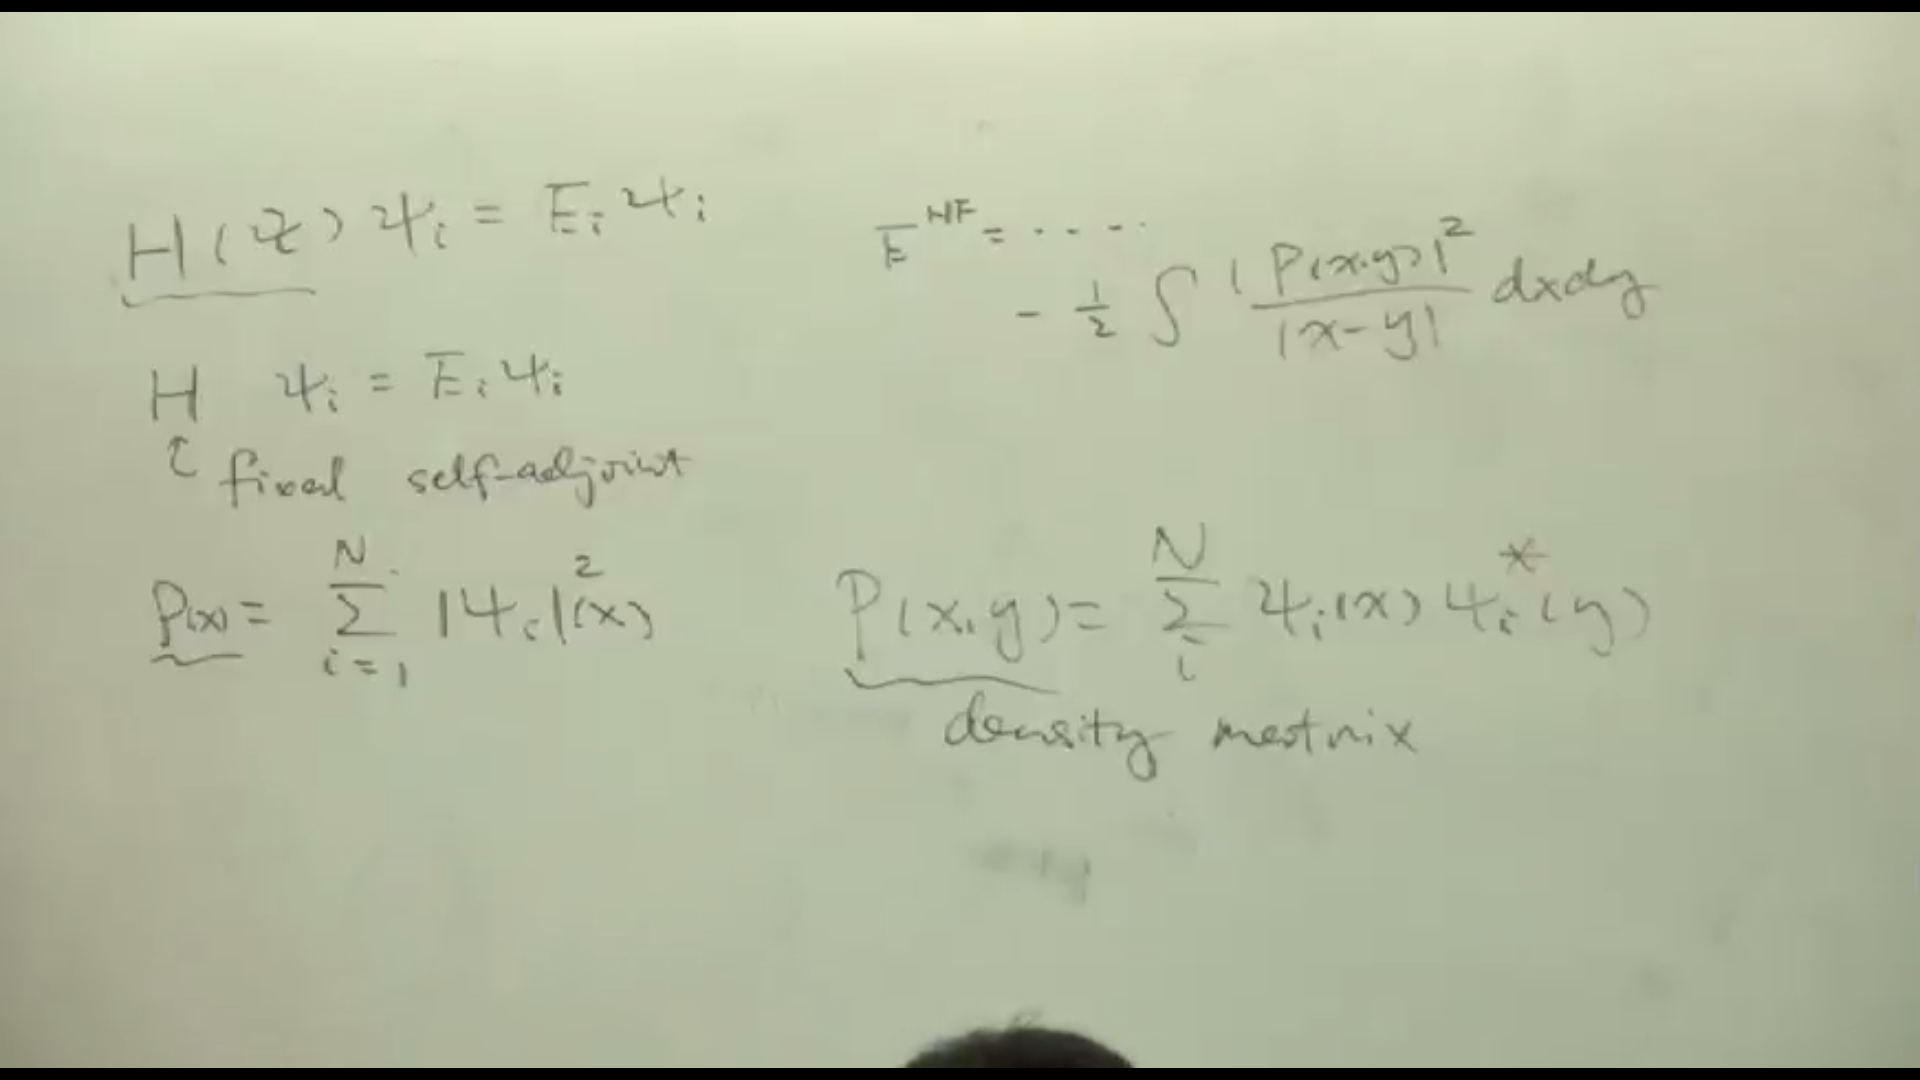 H(Ψ) Ψᵢ = Eᵢ Ψᵢ
H Ψᵢ = Eᵢ Ψᵢ
↑ fixed self-adjoint
ρ(x) = ∑_{i=1}^{N} |Ψᵢ|²(x)
E^{HF} = ....
- 1/2 ∫ |P(x,y)|² / |x-y| dxdy
P(x,y) = ∑_{i}^{N} Ψᵢ(x) Ψᵢ*(y)
density matrix